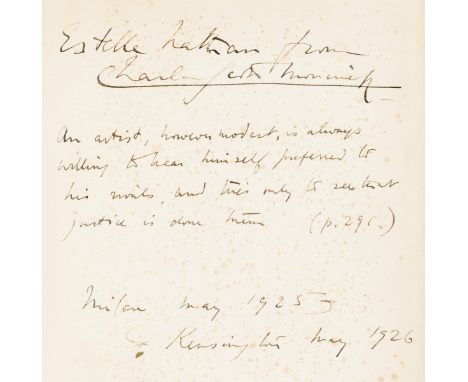 Estelle Nathan from
Charles Scott Moncrieff
An artist, however modest, is always
willing to hear himself preferred to
his rivals, and tries only to see that
justice is done them (p. 291.)
Milan May 1925
& Kensington May 1926